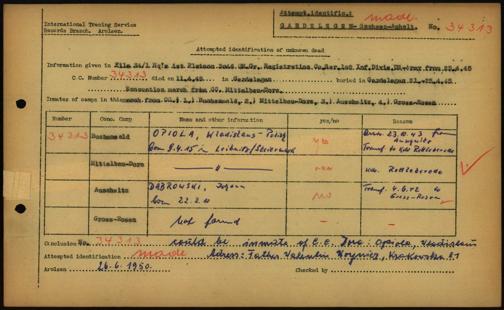 International Tracing Service
Records Branch. Arolsen.
Attempt. identific.: made
GARDELEGEN-Sachsen-Anhalt. No. 34313
Attempted identification of unknown dead
Information given in File 24/1 Hq's 1st Platoon 3048 QM.Gr. Registration Co. 102 Inf. Divis. US Army from 25.4.45
C.C. Number 34313 died on 11.4.45 in Gardelegen buried in Gardelegen 21.-25.4.45
Evacuation march from CC. Mittelbau-Dora.
Inmates of camps in the march from CC. 1.) Buchenwald, 2.) Mittelbau-Dora, 3.) Auschwitz, 4.) Gross-Rosen
Number Conc. Camp Name and other information yes/no Reason
34313 Buchenwald OPIOLA, Wladislaus - Pole yes 23.10.43 from
born 9.4.15 in Transf. to Kdo Rottleberode
Mittelbau-Dora — " — — Rottleberode
Auschwitz DABROWSKI, no Transf. 4.6.42 to
born 22.2. Gross-Rosen
Gross-Rosen not found — —
Conclusion No. 34313 could be inmate of C.C. Dora: Opiola, Wladislaus
Attempted identification made Adress: Father Valentin Krakowska 21
Arolsen 26.6.1950. Checked by